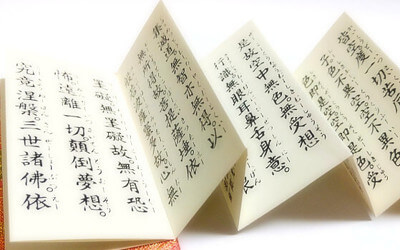 皆空度一切苦厄
子色不異空空不異
色即是空空即是色受
是故空中無色無受想
行識無眼耳鼻舌身意。
滅道無智亦無得。以
無所得故菩提薩埵依
故心無
罣礙無罣礙故無有恐
怖遠離一切顛倒夢想。
究竟涅槃三世諸佛依